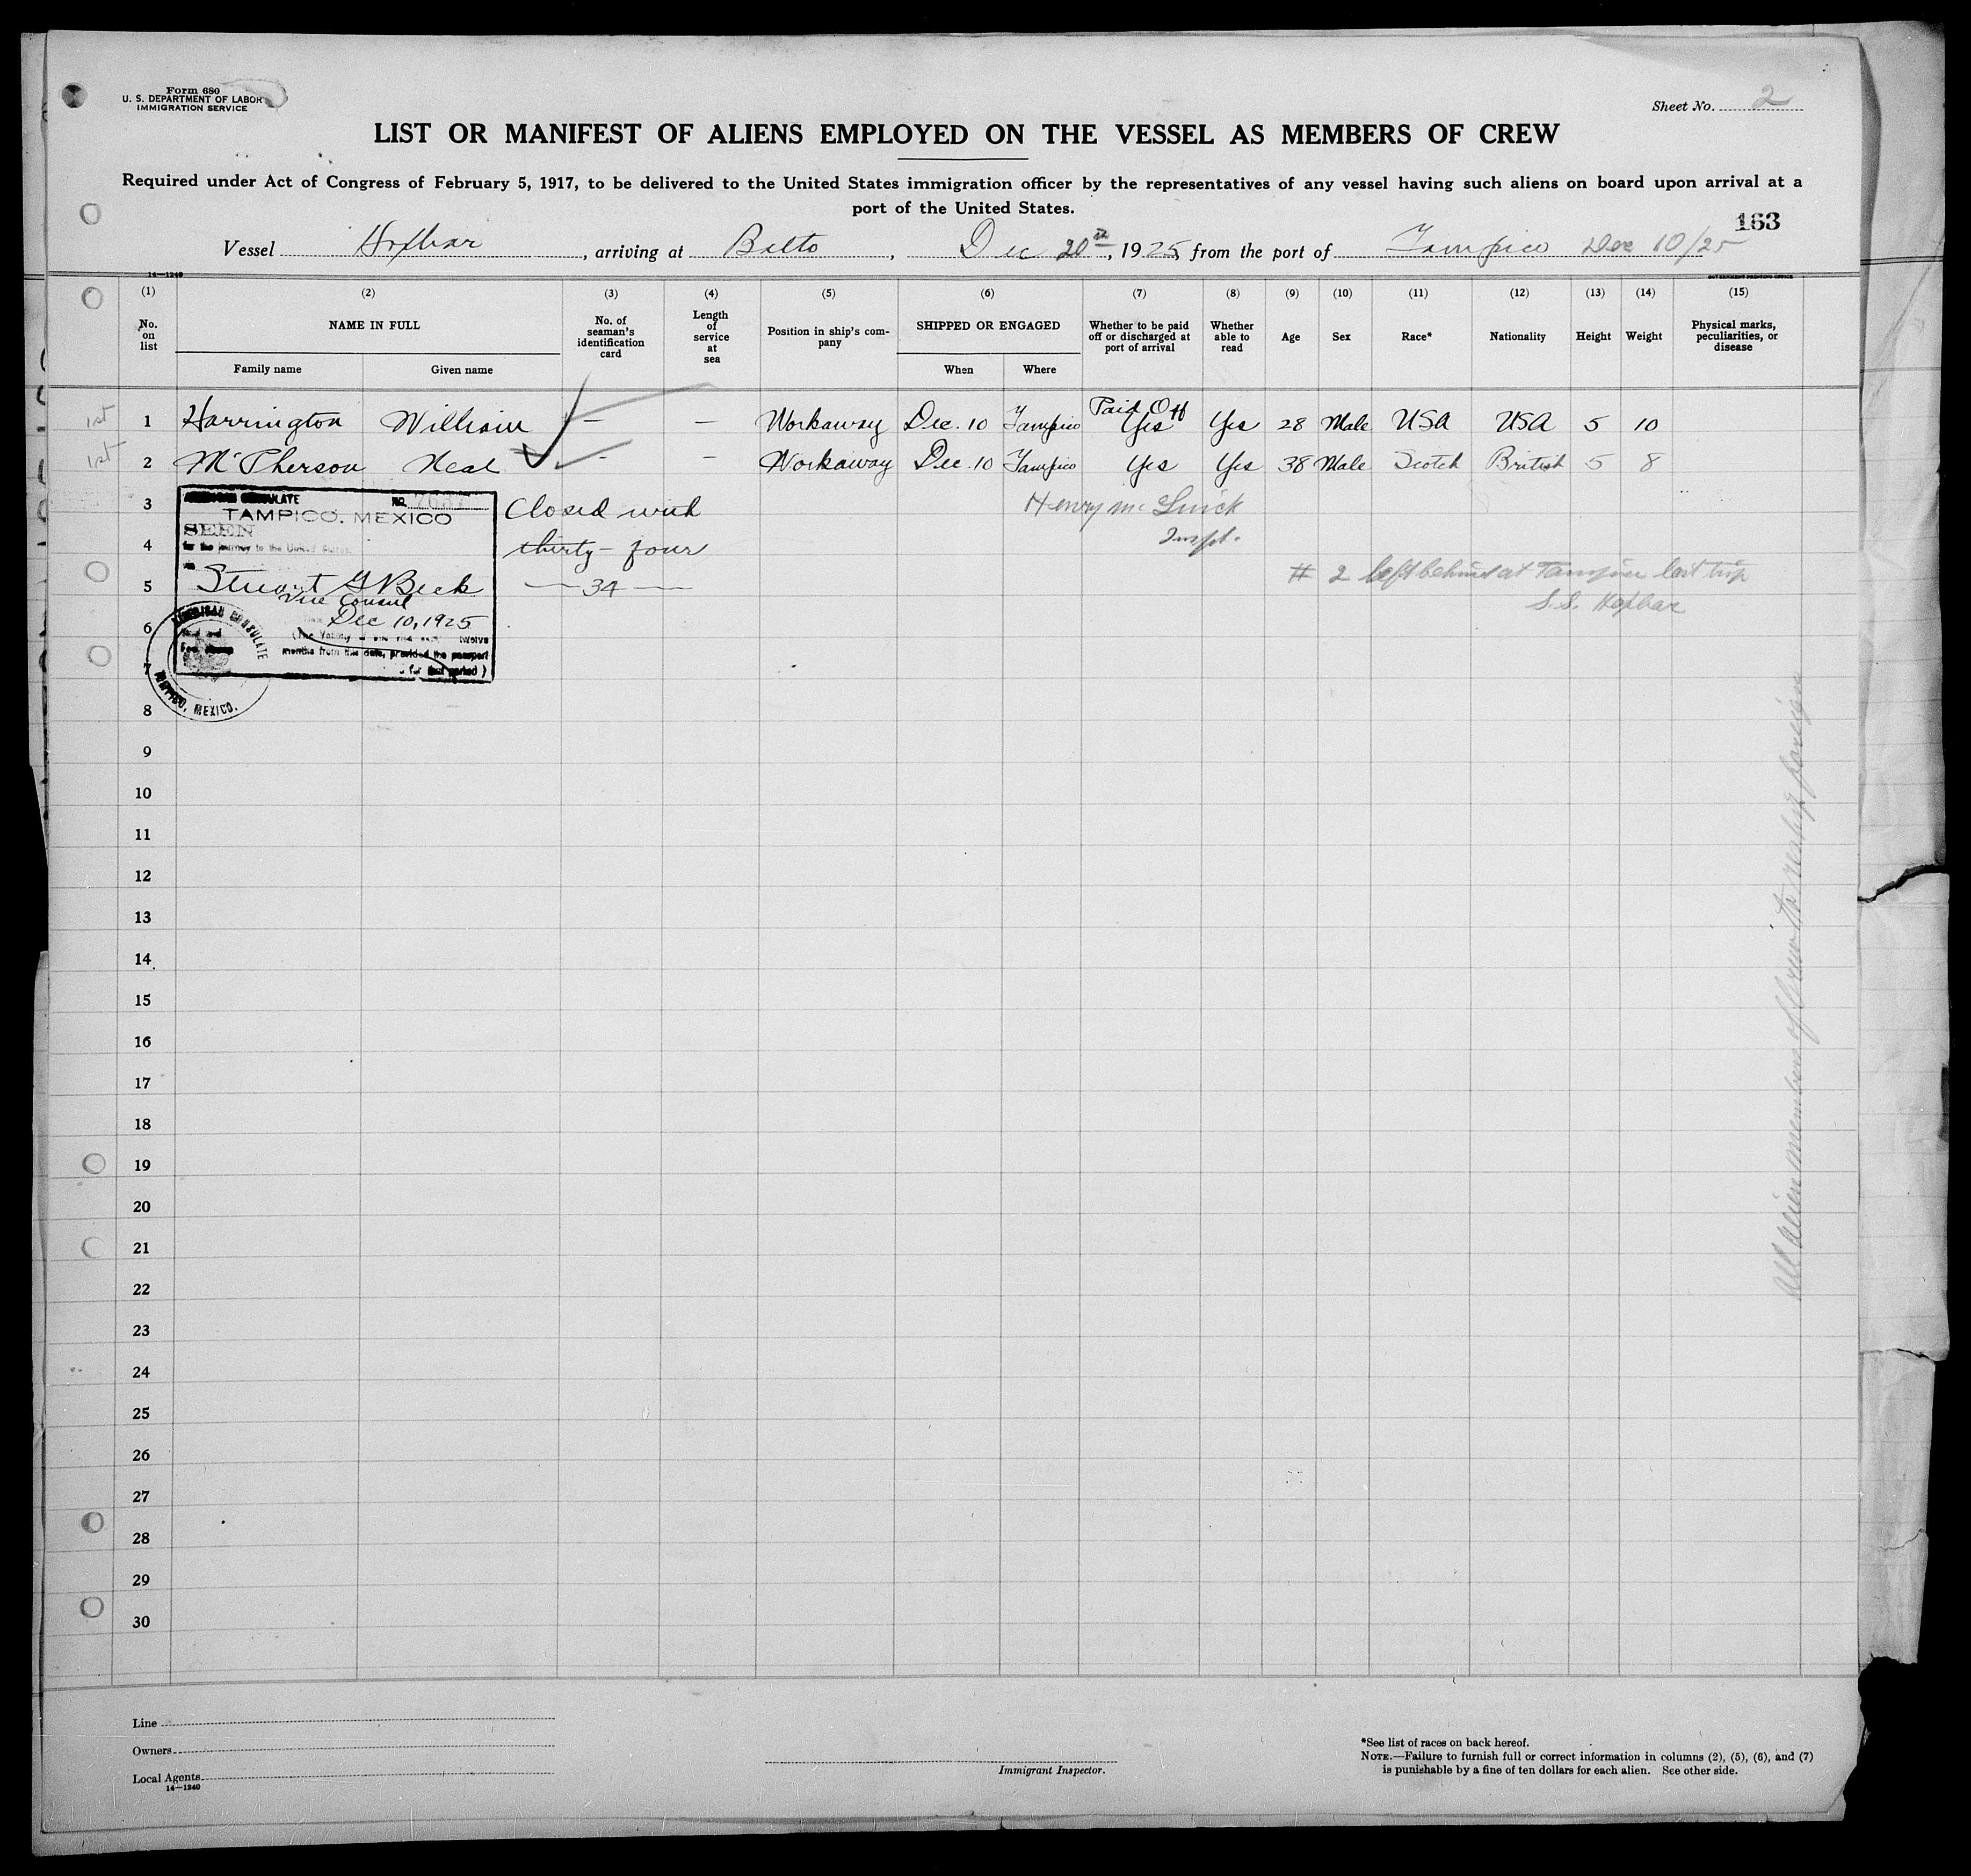 Form 680
U. S. DEPARTMENT OF LABOR
IMMIGRATION SERVICE
Sheet No. 2
LIST OR MANIFEST OF ALIENS EMPLOYED ON THE VESSEL AS MEMBERS OF CREW
Required under Act of Congress of February 5, 1917, to be delivered to the United States immigration officer by the representatives of any vessel having such aliens on board upon arrival at a
port of the United States.
163
Vessel Hoxbar, arriving at Balto, Dec 20th, 1925, from the port of Tampico Dec 10/25
14—1240
GOVERNMENT PRINTING OFFICE
(1) (2) (3) (4) (5) (6) (7) (8) (9) (10) (11) (12) (13) (14) (15)
No. on list
NAME IN FULL
Family name Given name
No. of seaman's identification card
Length of service at sea
Position in ship's company
SHIPPED OR ENGAGED
When Where
Whether to be paid off or discharged at port of arrival
Whether able to read
Age Sex Race* Nationality Height Weight
Physical marks, peculiarities, or disease
Paid Off
1st 1 Harrington William — — Workaway Dec. 10 Tampico Yes Yes 28 Male USA USA 5 10
1st 2 McPherson Neal - — Workaway Dec. 10 Tampico Yes Yes 38 Male Scotch British 5 8
3
AMERICAN CONSULATE NO.
TAMPICO, MEXICO
SEEN
for the journey to the United States.
Stuart G Beck
Vice Consul
Dec 10, 1925
twelve
months from this date, provided the passport
for that period)
AMERICAN CONSULATE
TAMPICO, MEXICO.
Closed with
thirty-four
—34—
Henry Mc
Inspt.
# 2 left behind at Tampico last trip
S.S. Hoxbar
4
5
6
7
8
9
10
11
12
13
14
15
16
17
18
19
20
21
22
23
24
25
26
27
28
29
30
All alien members of crew to reship foreign
Line
Owners
Local Agents
14—1240
Immigrant Inspector.
*See list of races on back hereof.
NOTE.—Failure to furnish full or correct information in columns (2), (5), (6), and (7)
is punishable by a fine of ten dollars for each alien. See other side.